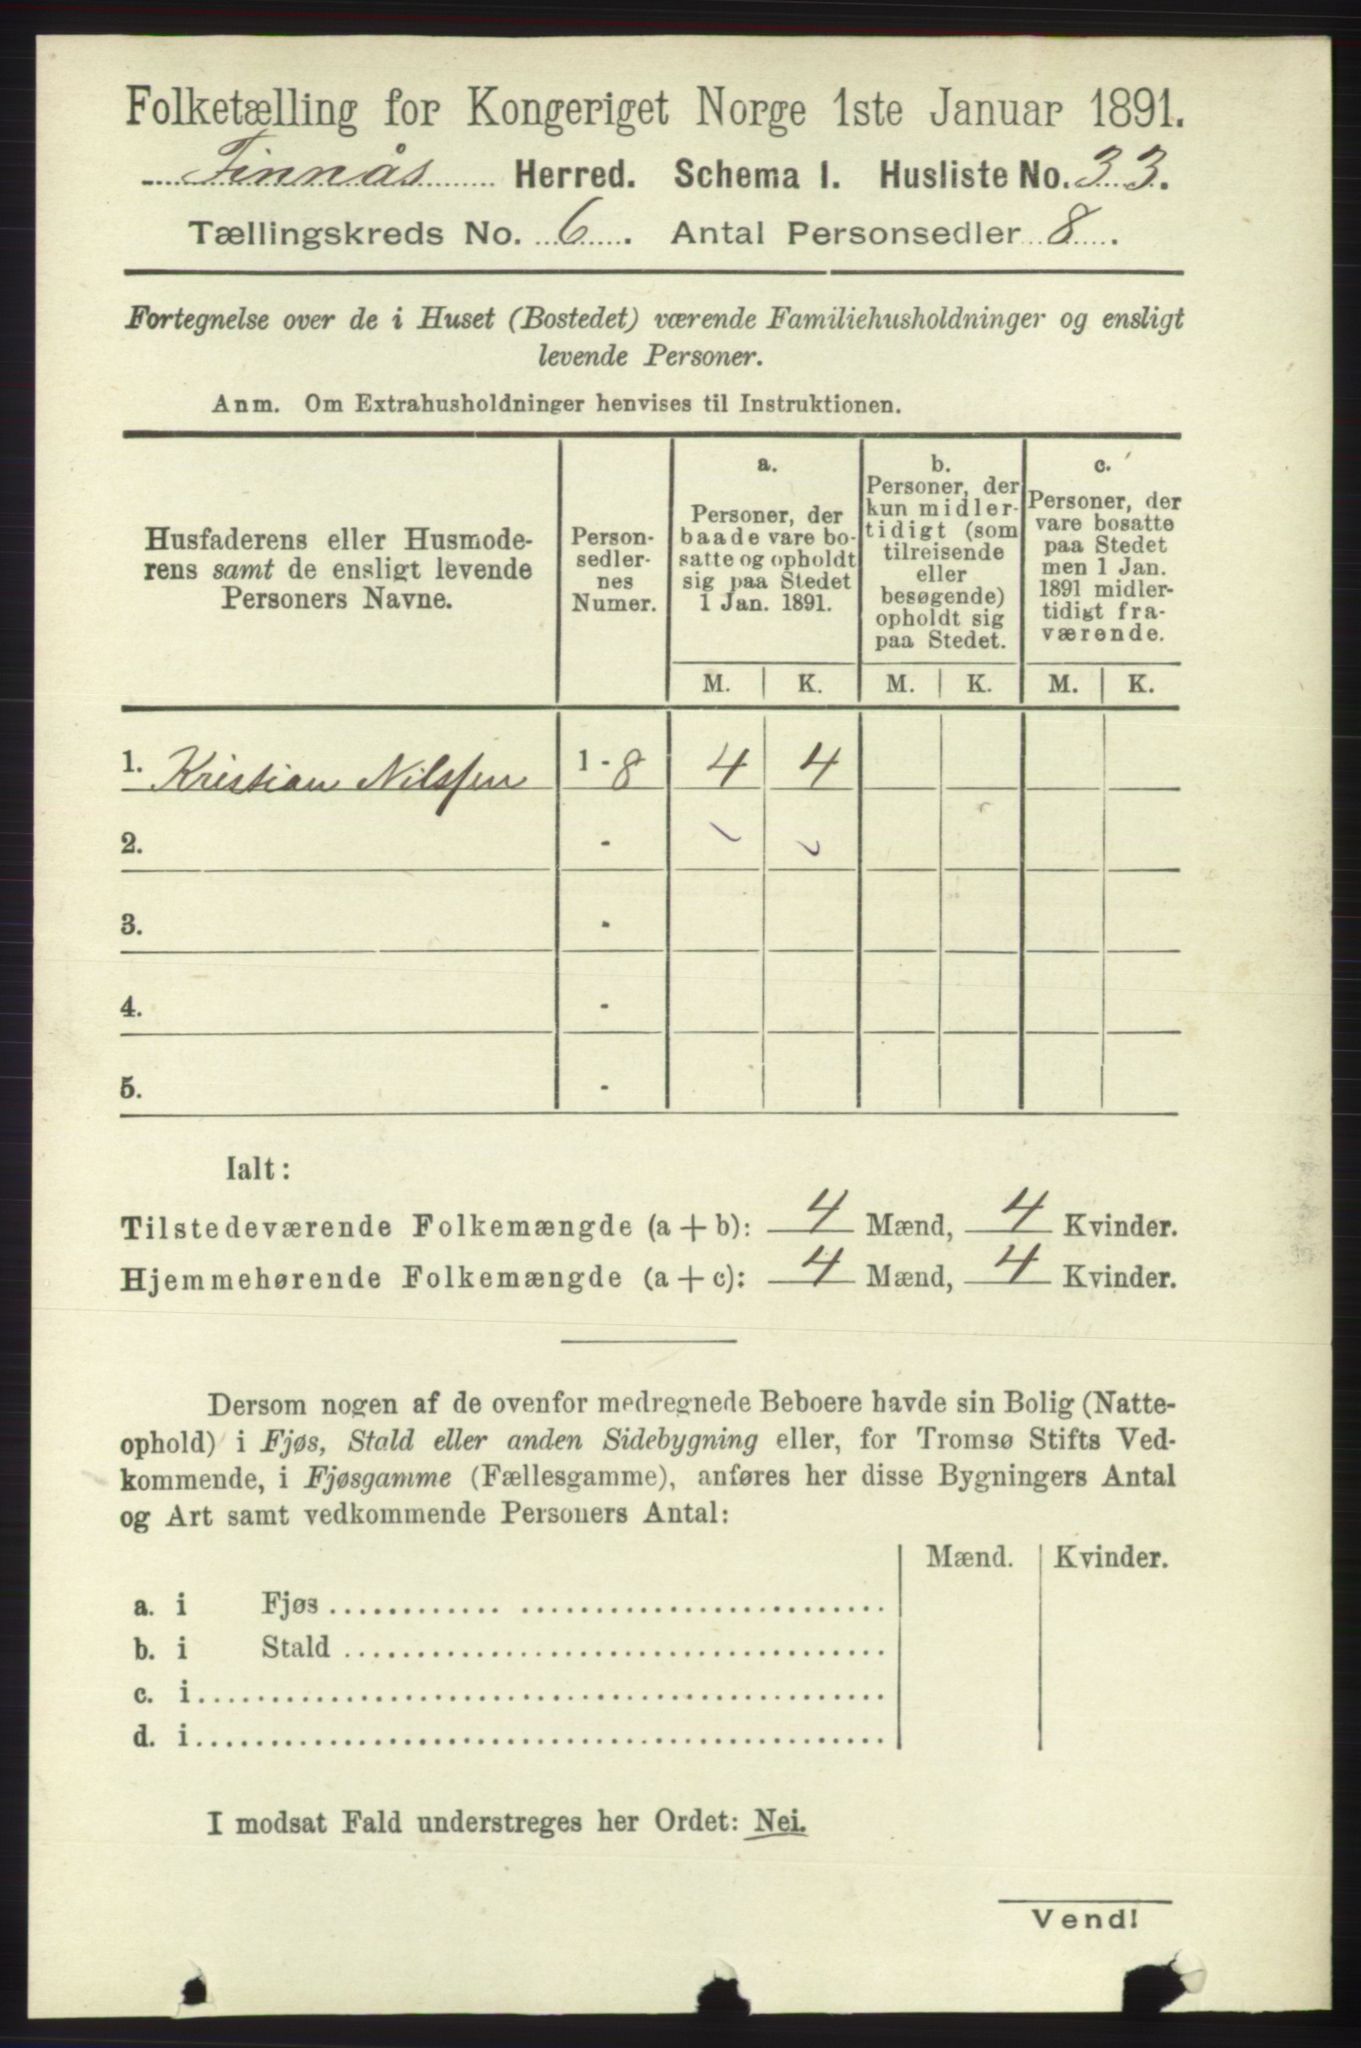 Folketælling for Kongeriget Norge 1ste Januar 1891.
Finnås Herred. Schema I. Husliste No. 33.
Tællingskreds No. 6. Antal Personsedler 8.
Fortegnelse over de i Huset (Bostedet) værende Familiehusholdninger og ensligt
levende Personer.
Anm. Om Extrahusholdninger henvises til Instruktionen.
Husfaderens eller Husmode-
rens samt de ensligt levende
Personers Navne.
Person-
sedler-
nes
Numer.
a.
Personer, der
baade vare bo-
satte og opholdt
sig paa Stedet
1 Jan. 1891.
b.
Personer, der
kun midler-
tidigt (som
tilreisende
eller
besøgende)
opholdt sig
paa Stedet.
c.
Personer, der
vare bosatte
paa Stedet
men 1 Jan.
1891 midler-
tidigt fra-
værende.
M. K. M. K. M. K.
1. Kristian Nilssen 1-8 4 4
2. -
3. -
4. -
5. -
Ialt:
Tilstedeværende Folkemængde (a+b): 4 Mænd, 4 Kvinder.
Hjemmehørende Folkemængde (a+c): 4 Mænd, 4 Kvinder.
Dersom nogen af de ovenfor medregnede Beboere havde sin Bolig (Natte-
ophold) i Fjøs, Stald eller anden Sidebygning eller, for Tromsø Stifts Ved-
kommende, i Fjøsgamme (Fællesgamme), anføres her disse Bygningers Antal
og Art samt vedkommende Personers Antal:
Mænd. Kvinder.
a. i Fjøs
b. i Stald
c. i
d. i
I modsat Fald understreges her Ordet: Nei.
Vend!